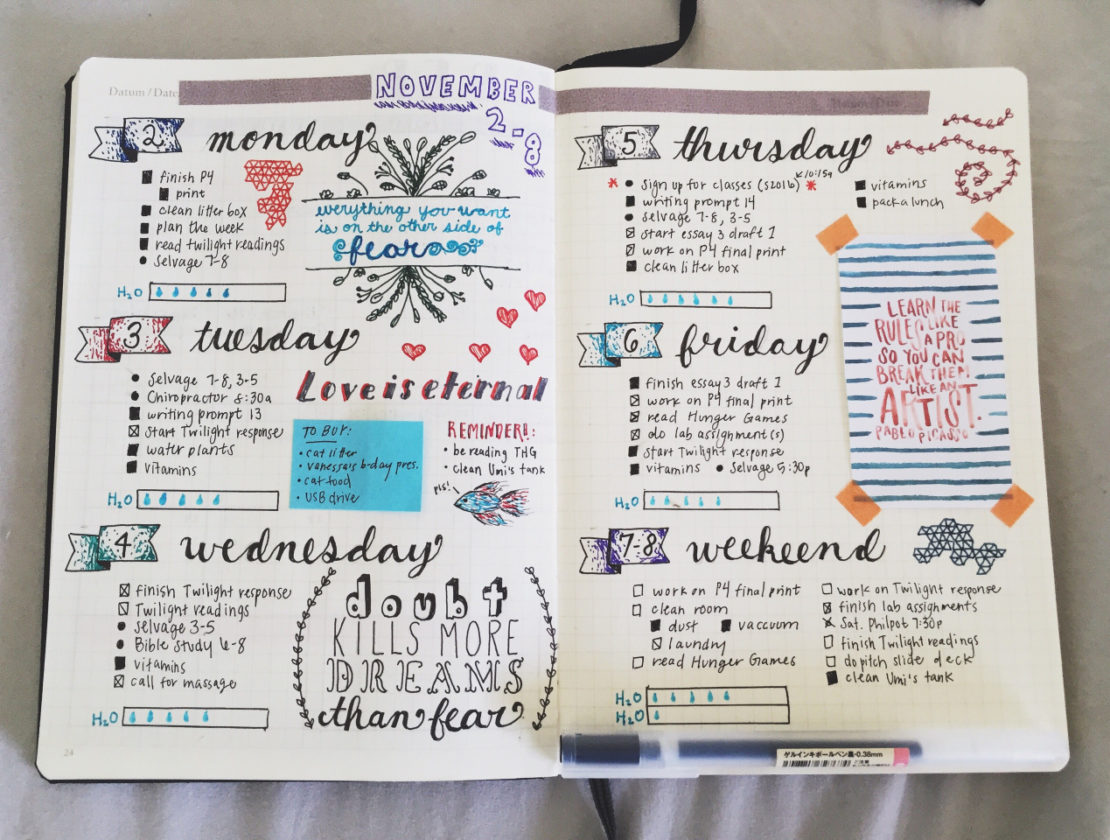 Datum / Date:
NOVEMBER
2-8
2 monday
finish P4
print
clean litter box
plan the week
read twilight readings
Selvage 7-8
H2O
everything you want
is on the other side of
fear
3 tuesday
Selvage 7-8, 3-5
Chiropractor 8:30a
writing prompt 13
start Twilight response
water plants
vitamins
H2O
Love is eternal
TO BUY:
• cat litter
• vanessa's b-day pres.
• cat food
• USB drive
REMINDER!:
• be reading THG
• clean Umi's tank
pls!
4 wednesday
finish Twilight response
Twilight readings
Selvage 3-5
Bible study 6-8
vitamins
call for massage
H2O
doubt
KILLS MORE
DREAMS
than fear
24
5 thursday
Sign up for classes (S2016) 10:15a
writing prompt 14
selvage 7-8, 3-5
start essay 3 draft 1
work on P4 final print
clean litter box
vitamins
pack a lunch
H2O
6 friday
finish essay 3 draft 1
work on P4 final print
read Hunger Games
do lab assignment(s)
start Twilight response
vitamins • Selvage 5:30p
H2O
LEARN THE
RULES LIKE
A PRO
SO YOU CAN
BREAK THEM
LIKE AN
ARTIST.
PABLO PICASSO
7-8 weekeend
work on P4 final print
clean room
dust
vaccuum
laundry
read Hunger Games
work on Twilight response
finish lab assignments
Sat. Philpot 7:30p
finish Twilight readings
do pitch slide deck
clean Umi's tank
H2O
H2O
ゲルインキボールペン黒・0.38mm